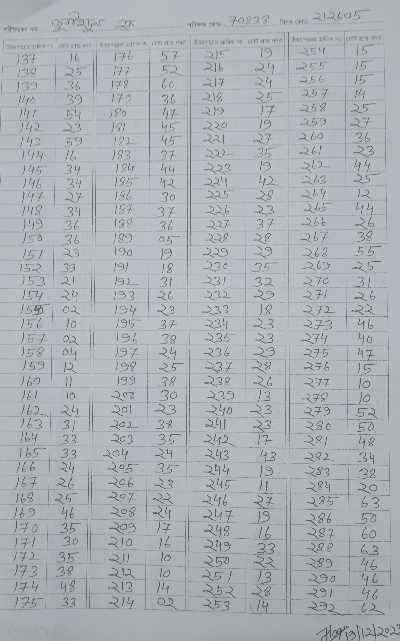 70838 212605
137 16 176 57 215 19 254 15
138 25 177 52 216 24 255 15
139 36 178 60 217 24 256 15
140 39 179 36 218 25 257 14
141 54 180 47 219 17 258 25
142 23 181 45 220 19 259 27
143 59 182 45 221 27 260 36
144 16 183 37 222 35 261 23
145 34 184 44 223 19 262 44
146 34 185 42 224 42 263 25
147 27 186 30 225 28 264 12
148 34 187 37 226 23 265 44
149 36 188 36 227 37 266 26
150 36 189 05 228 28 267 38
151 23 190 19 229 29 268 55
152 39 191 18 230 35 269 25
153 21 192 31 231 32 270 31
154 24 193 26 232 29 271 26
155 02 194 23 233 18 272 22
156 10 195 37 234 23 273 46
157 02 196 38 235 23 274 40
158 04 197 24 236 29 275 47
159 12 198 25 237 28 276 15
160 11 199 38 238 26 277 10
161 10 200 30 239 13 278 10
162 24 201 23 240 23 279 52
163 31 202 38 241 23 280 50
164 33 203 35 242 17 281 48
165 33 204 24 243 43 282 34
166 24 205 35 244 19 283 38
167 26 206 23 245 11 284 20
168 25 207 22 246 27 285 63
169 46 208 24 247 19 286 50
170 35 209 17 248 16 287 60
171 30 210 16 249 33 288 63
172 35 211 10 250 22 289 46
173 38 212 10 251 13 290 46
174 48 213 14 252 28 291 46
175 33 214 02 253 14 292 62